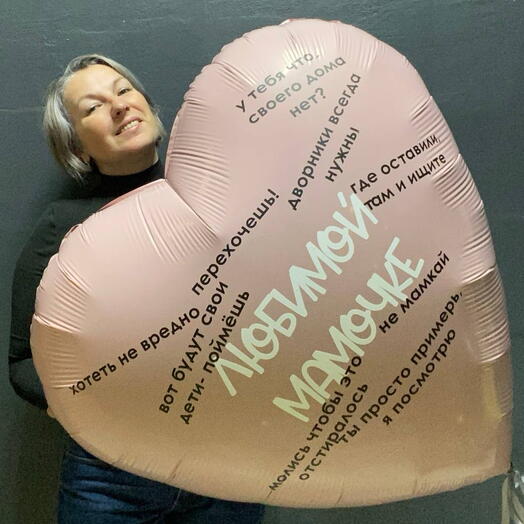 у тебя что,
своего дома
нет?
дворники всегда
нужны
где оставили,
там и ищите
хотеть не вредно перехочешь!
вот будут свои
дети- поймёшь
ЛЮБИМОЙ
МАМОЧКЕ
не мамкай
молись чтобы это
отстиралось
ты просто примерь,
я посмотрю